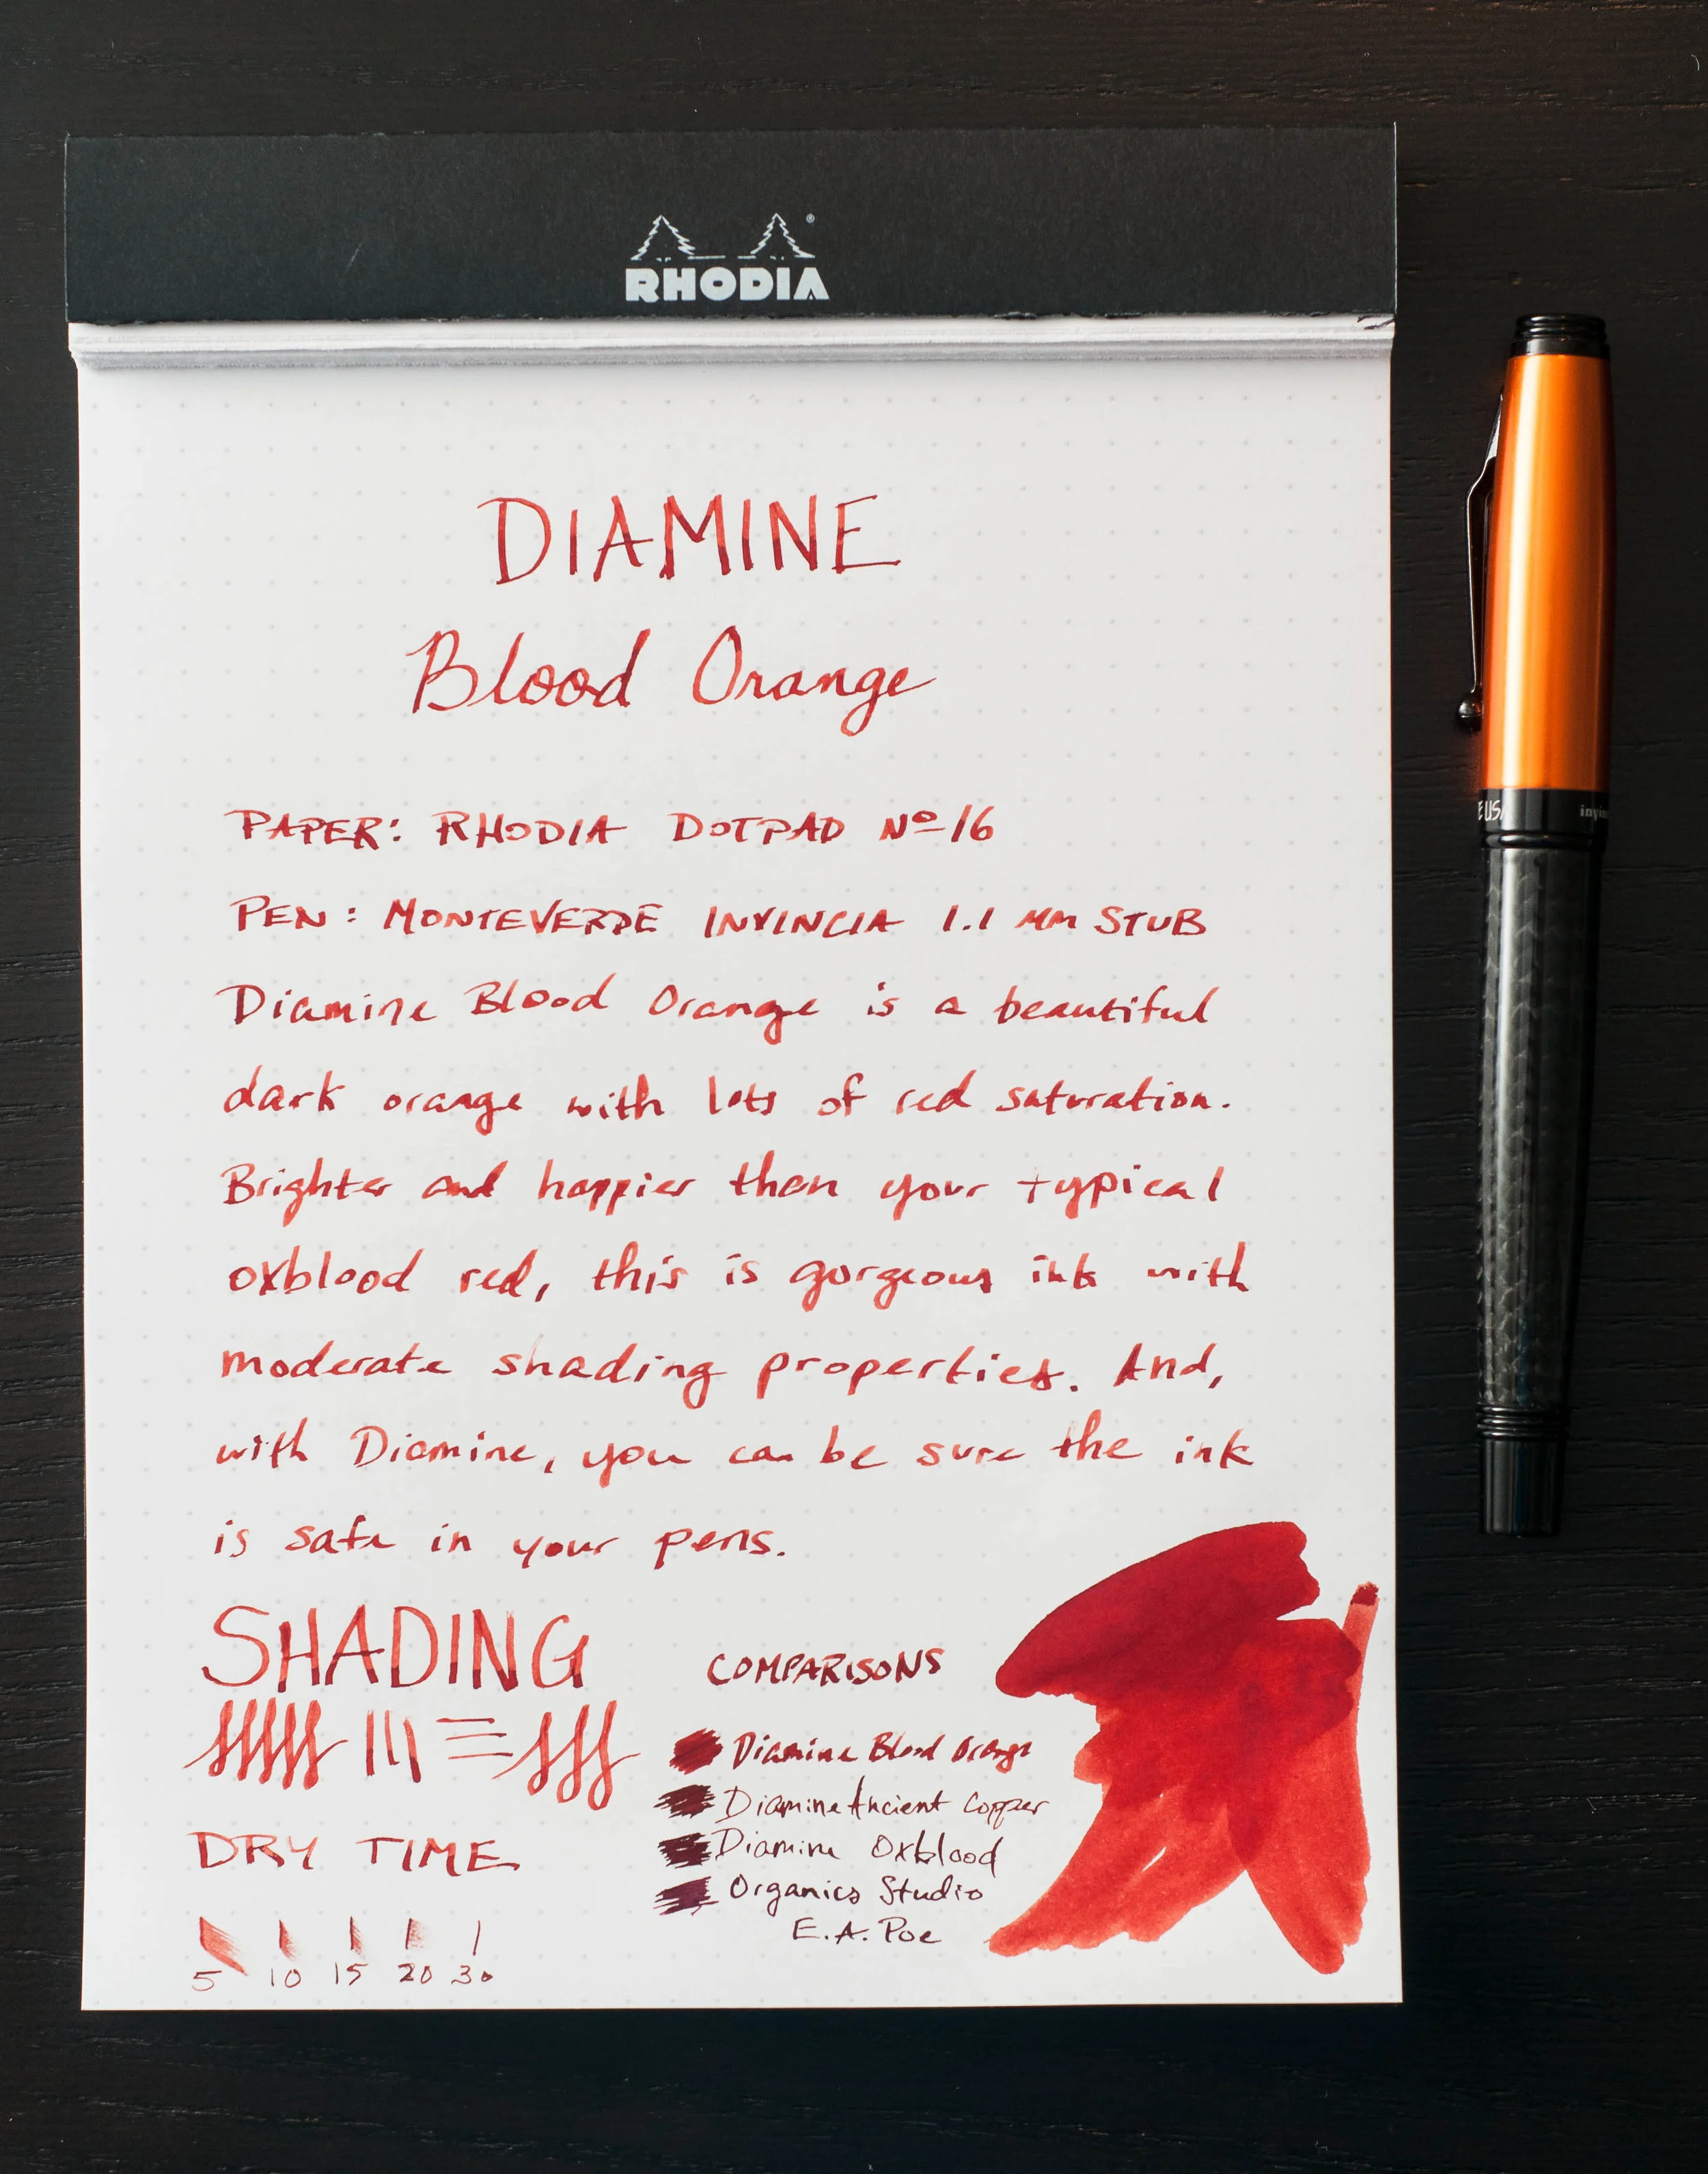 RHODIA
DIAMINE
Blood Orange
PAPER: RHODIA DOTPAD Nº16
PEN: MONTEVERDE INVINCIA 1.1 MM STUB
Diamine Blood Orange is a beautiful
dark orange with lots of red saturation.
Brighter and happier than your typical
oxblood red, this is gorgeous ink with
moderate shading properties. And,
with Diamine, you can be sure the ink
is safe in your pens.
SHADING
DRY TIME
5 10 15 20 30
COMPARISONS
Diamine Blood Orange
Diamine Ancient Copper
Diamine Oxblood
Organics Studio
E.A. Poe
E USA